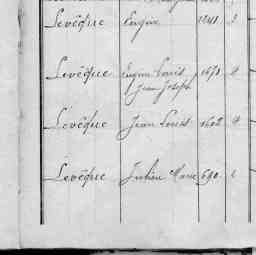 Levêque Eugène 1241
Levêque Eugène Louis 1673
Jean Joseph
Levêque Jean Louis 1602
Levêque Julien Marie 690